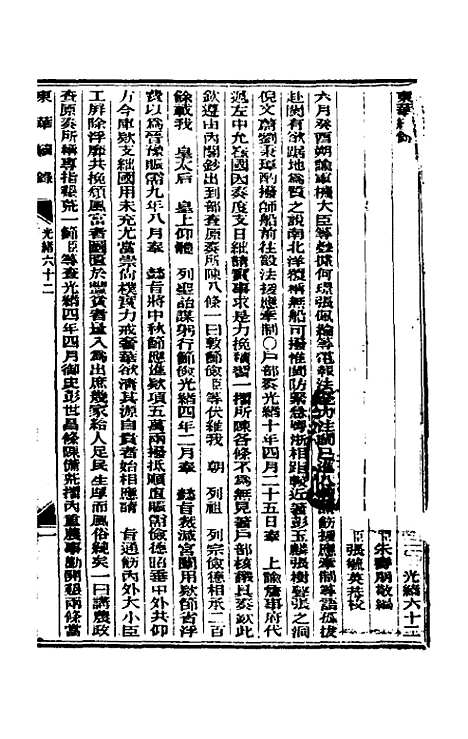 東華續錄
光緒六十二
臣朱壽朋敬編
臣張毓英恭校
六月癸酉朔諭軍機大臣等據何璟張佩綸等電報法
赴閩有欲踞地為質之說南北洋覆稱無船可撥惟閩防緊急粵浙相距較近著彭玉麟張樹聲張之洞
倪文蔚劉秉璋酌撥師船前往設法援應牽制○戶部奏光緒十年四月二十五日奉 上諭詹事府代
遞左中允崔國因奏度支日絀請實事求是力挽積習一摺所陳各條不為無見著戶部核議具奏欽此
欽遵由內閣鈔出到部查原奏所陳八條一曰敦節儉臣等伏維我 朝 列祖 列宗儉德相承二百
餘載我 皇太后 皇上仰體 列聖詒謀躬行節儉光緒四年二月奉 懿旨裁減宮闈用款節省浮
費以為晉豫賑需九年八月奉 懿旨將中秋節應進款項五萬兩撥抵順直賑需儉德昭垂中外共仰
方今庫款支絀國用未充尤當崇尚樸實力戒奢華欲清其源自貴者始相應請 旨通飭內外大小臣
工屏除浮靡共挽頹風富者國匱於豐貧者量入為出庶幾家給人足民生厚而風俗純矣一曰講農政
查原奏所稱專指墾荒一節臣等查光緒四年四月御史彭世昌條陳備荒摺內重農事勸開墾兩條當
東華續錄
光緒六十二
一